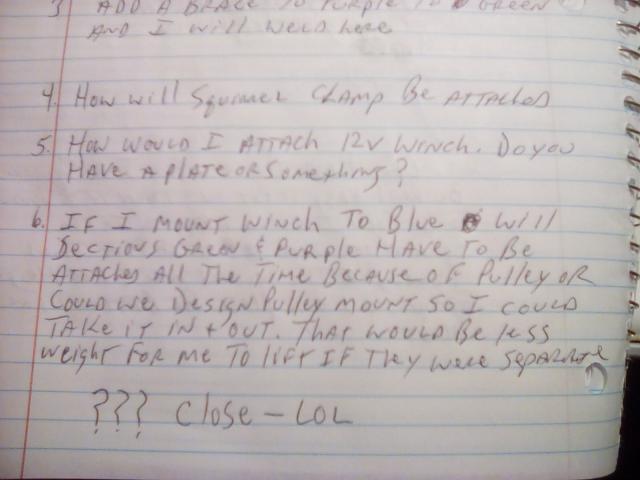 3 ADD A BRACE TO PURPLE TO GREEN
AND I will weld here
4. How will Squirrel Clamp Be ATTACHED
5. How would I ATTACH 12V winch. Do you
HAVE A plate or Something?
6. IF I mount winch To Blue will
Sections Green & Purple HAVE To Be
ATTACHED All The Time Because of Pulley or
Could we Design Pulley mount So I could
TAKE iT IN + OUT. That would Be less
weight For me To lift IF They were Separate
??? Close - LOL